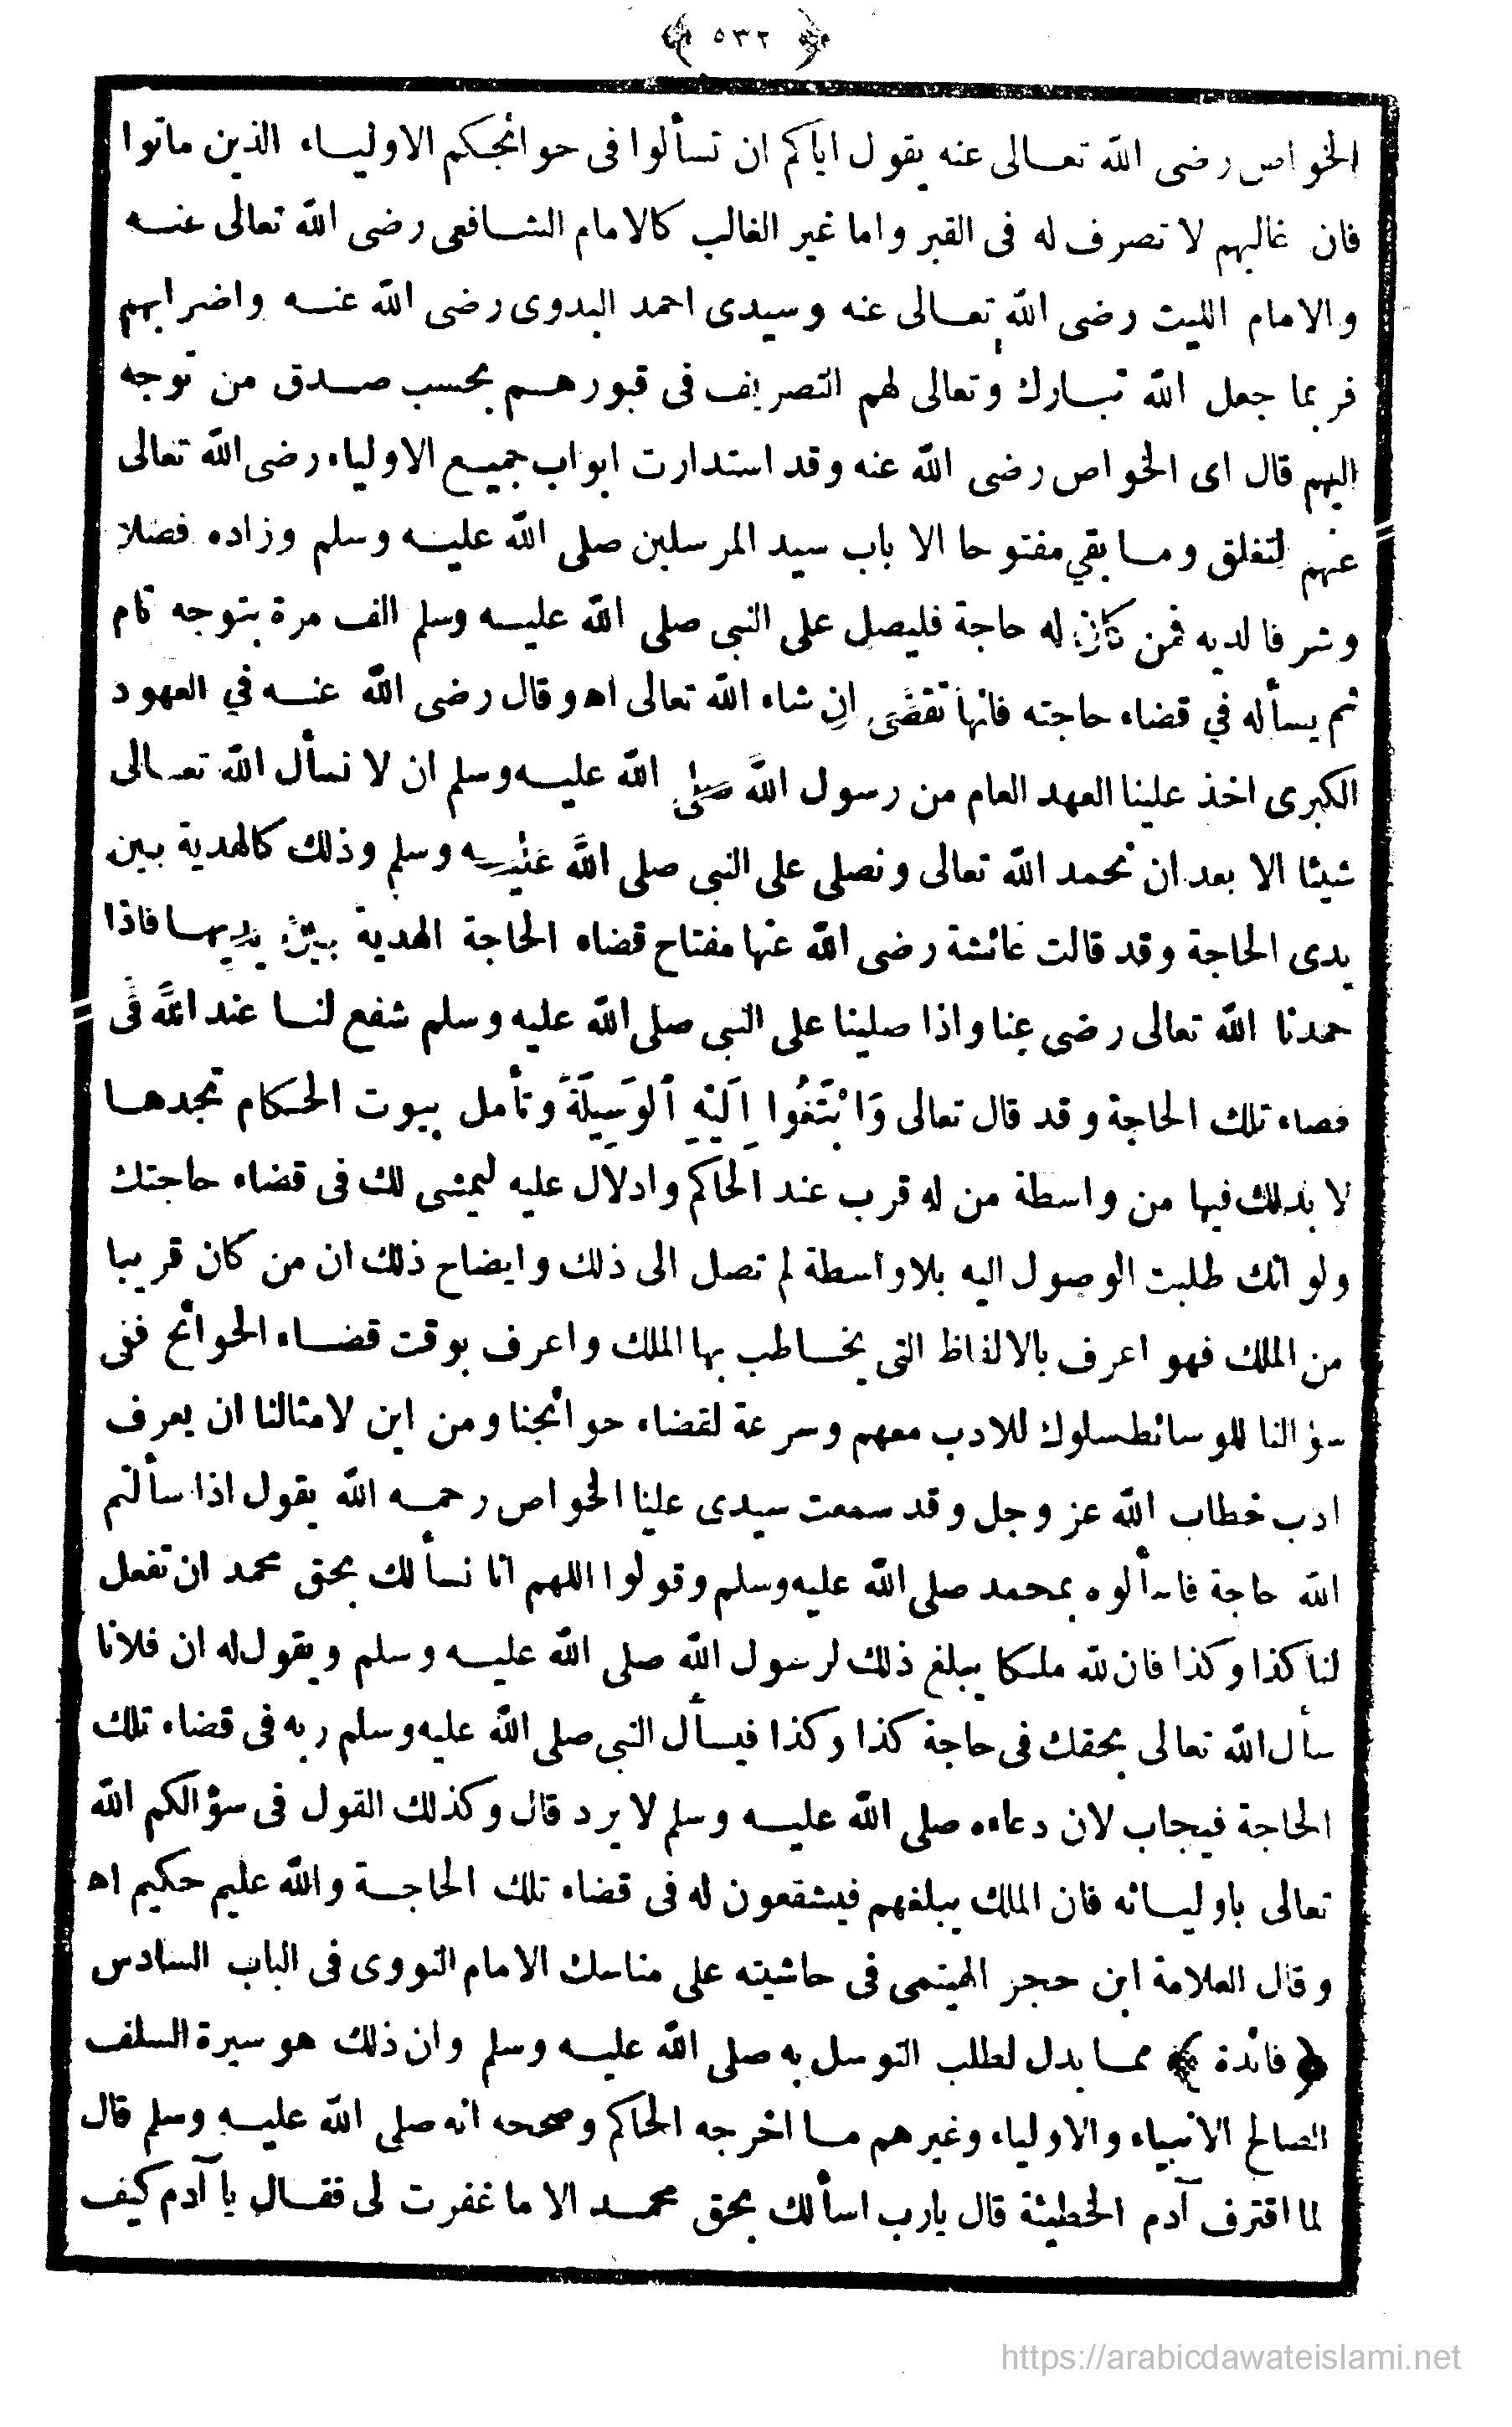 ﴿ ٥٣٢ ﴾
الخواص رضى الله تعالى عنه يقول اياكم ان تسألوا فى حوائجكم الاولياء الذين ماتوا
فان غالبهم لا تصرف له فى القبر واما غير الغالب كالامام الشافعى رضى الله تعالى عنه
والامام الليث رضى الله تعالى عنه وسيدى احمد البدوى رضى الله عنه واضرابهم
فربما جعل الله تبارك وتعالى لهم التصريف فى قبورهم بحسب صدق من توجه
اليهم قال اى الخواص رضى الله عنه وقد استدارت ابواب جميع الاولياء رضى الله تعالى
عنهم لتغلق وما بقي مفتوحا الا باب سيد المرسلين صلى الله عليه وسلم وزاده فضلا
وشرفا لديه فمن كان له حاجة فليصل على النبى صلى الله عليه وسلم الف مرة بتوجه تام
ثم يسأله في قضاء حاجته فانها تقضى ان شاء الله تعالى اه وقال رضى الله عنه في العهود
الكبرى اخذ علينا العهد العام من رسول الله صلى الله عليه وسلم ان لا نسأل الله تعالى
شيئا الا بعد ان نحمد الله تعالى ونصلى على النبى صلى الله عليه وسلم وذلك كالهدية بين
يدى الحاجة وقد قالت عائشة رضى الله عنها مفتاح قضاء الحاجة الهدية بين يديها فاذا
حمدنا الله تعالى رضى عنا واذا صلينا على النبى صلى الله عليه وسلم شفع لنا عند الله فى
قصاء تلك الحاجة وقد قال تعالى وَابْتَغُوا اِلَيْهِ ٱلوَسِيلَةَ وتأمل بيوت الحكام تجدها
لا بد لك فيها من واسطة من له قرب عند الحاكم وادلال عليه ليمشى لك فى قضاء حاجتك
ولو انك طلبت الوصول اليه بلا واسطة لم تصل الى ذلك وايضاح ذلك ان من كان قريبا
من الملك فهو اعرف بالالفاظ التى يخاطب بها الملك واعرف بوقت قضاء الحوائج ففى
سؤالنا للوسائط سلوك للادب معهم وسرعة لقضاء حوائجنا ومن اين لامثالنا ان يعرف
ادب خطاب الله عز وجل وقد سمعت سيدى عليا الخواص رحمه الله يقول اذا سألتم
الله حاجة فاسألوه بمحمد صلى الله عليه وسلم وقولوا اللهم انا نسألك بحق محمد ان تفعل
لنا كذا وكذا فان لله ملكا يبلغ ذلك لرسول الله صلى الله عليه وسلم ويقول له ان فلانا
سأل الله تعالى بحقك فى حاجة كذا وكذا فيسأل النبى صلى الله عليه وسلم ربه فى قضاء تلك
الحاجة فيجاب لان دعاءه صلى الله عليه وسلم لا يرد قال وكذلك القول فى سؤالكم الله
تعالى باوليائه فان الملك يبلغهم فيشفعون له فى قضاء تلك الحاجة والله عليم حكيم اه
وقال العلامة ابن حجر الهيتمى فى حاشيته على مناسك الامام النووى فى الباب السادس
﴿ فائدة ﴾ مما يدل لطلب التوسل به صلى الله عليه وسلم وان ذلك هو سيرة السلف
الصالح الانبياء والاولياء وغيرهم ما اخرجه الحاكم وصححه انه صلى الله عليه وسلم قال
لما اقترف آدم الخطيئة قال يا رب اسألك بحق محمد الا ما غفرت لى فقال يا آدم كيف
https://arabicdawateislami.net